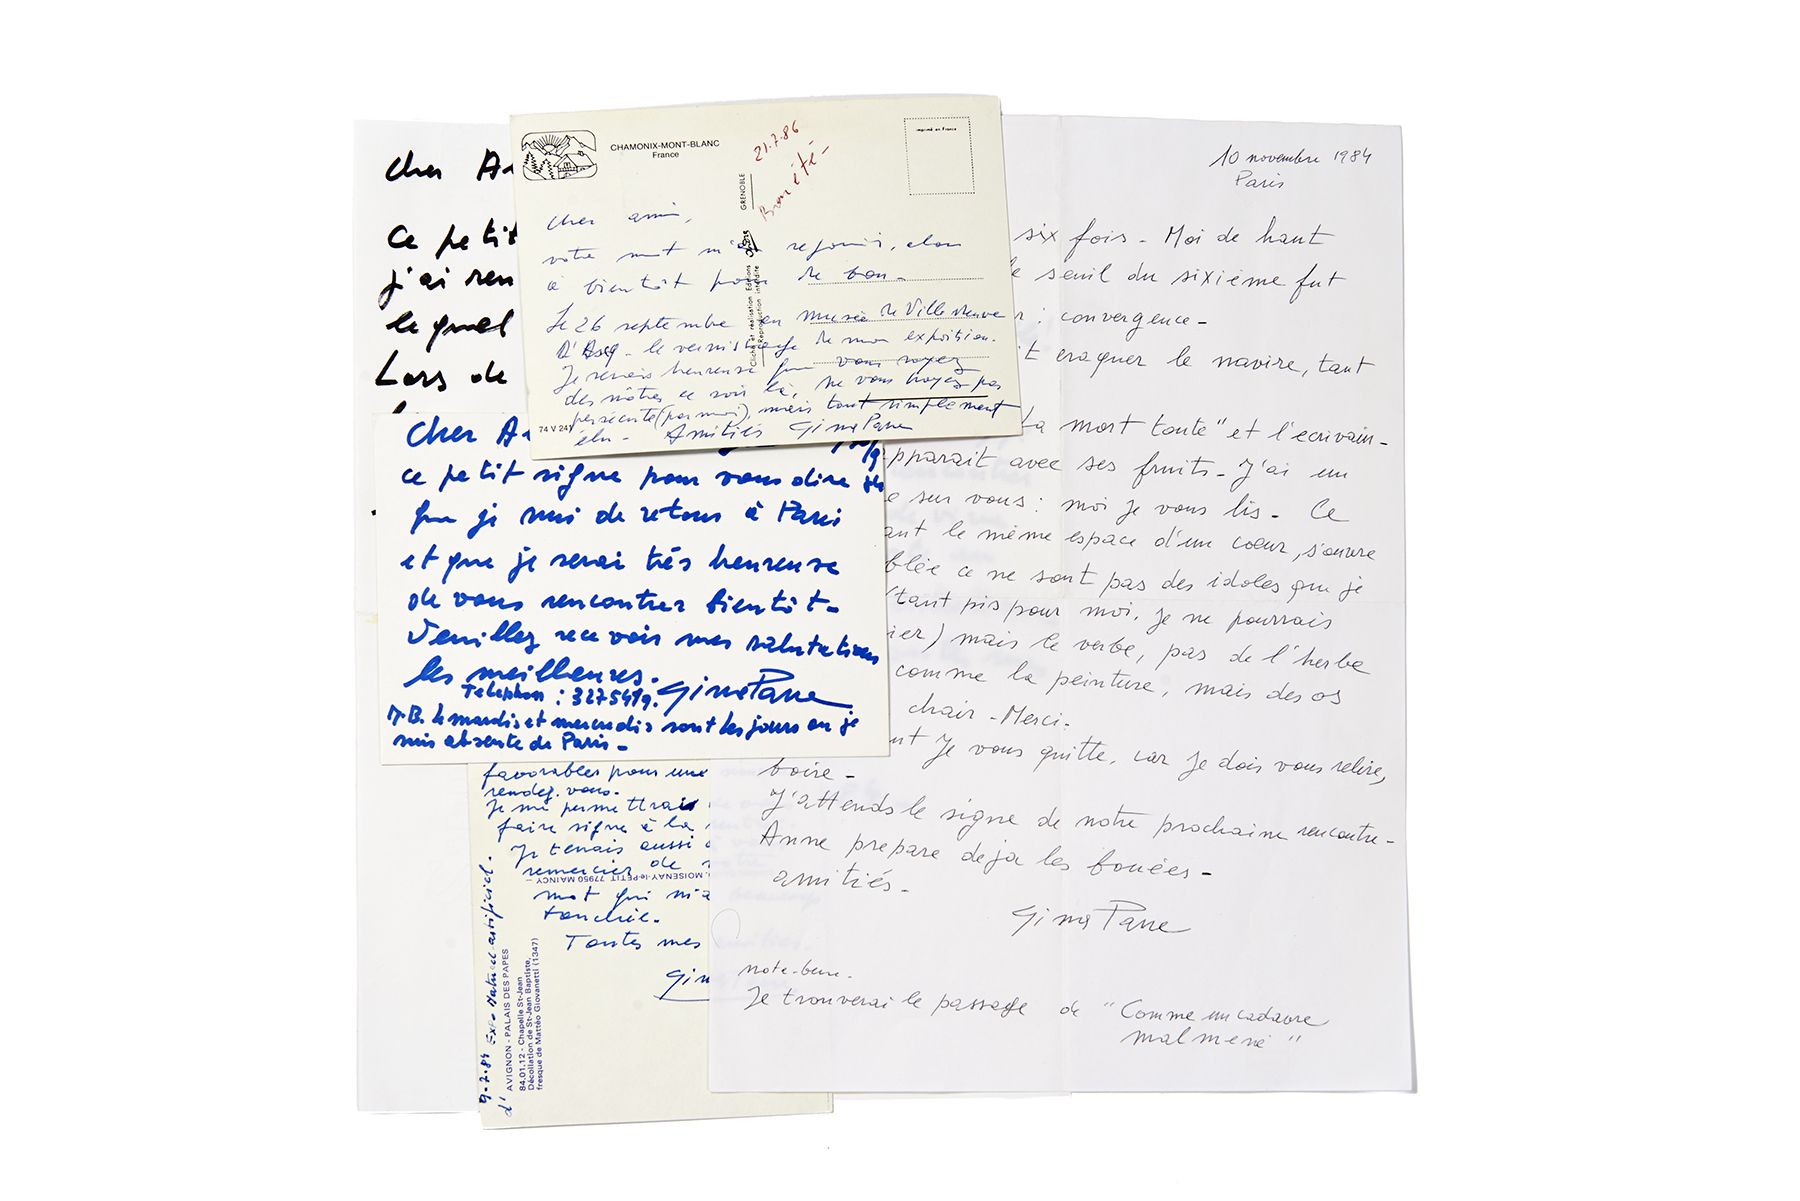 Cher
Ce petit
j'ai ren
lequel
Lors de
CHAMONIX-MONT-BLANC
France
21.7.86
imprimé en France
GRENOBLE
Cliché et réalisation Editions
Reproduction interdite
Cher ami,
votre mot m'a rejouis, alors
à bientôt pour de bon-
Le 26 septembre au musée de Villeneuve
D'Ascq - le vernissage de mon exposition.
Je serais heureuse que vous soyez
des nôtres ce soir là, ne vous croyez pas
persécuté (par moi), mais tout simplement
élu- Amitiés Gina Pane
74 V 241
Cher
ce petit signe pour vous dire
que je suis de retour à Paris
et que je serai très heureuse
de vous rencontrer bientôt-
Veuillez recevoir mes salutations
les meilleures.
Telephon : 3275419. Gina Pane
N.B. le mardis et mercredis sont les jours ou je
suis absente de Paris-
favorables pour une
rendez-vous.
Je me permettrais
faire signe à la
Je tenais aussi
remercier de
MOISENAY-le-PETIT 77950 MAINCY
mot qui m'a
touchée.
Toutes mes
Gin
9-7-84
d'AVIGNON - PALAIS DES PAPES
84.01.12 - Chapelle St-Jean
Décollation de St-Jean Baptiste,
fresque de Mattéo Giovanetti (1347)
10 novembre 1984
Paris
six fois - Moi de haut
le seuil du sixième fut
: convergence-
craquer le navire, tant
mort toute" et l'ecrivain-
apparait avec ses fruits- J'ai un
sur vous : moi je vous lis - Ce
ant le même espace d'un coeur, s'ouvre
blée ce ne sont pas des idoles que je
tant pis pour moi, je ne pourrais
ier) mais le verbe, pas de l'herbe
comme la peinture, mais des os
chair - Merci-
nt Je vous quitte, car je dois vous relire,
boire-
J'attends le signe de notre prochaine rencontre-
Anne prepare deja les bouées-
amitiés-
Gina Pane
note-bene-
Je trouverai le passage de "Comme un cadavre
malmené"